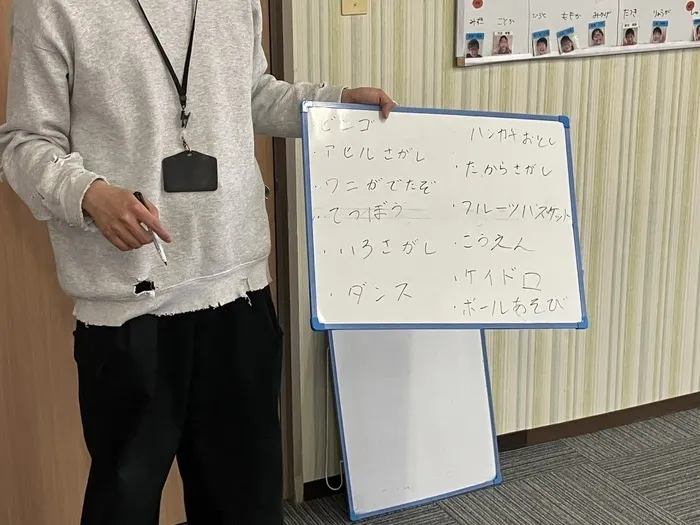 ビンゴ
・アヒルさがし
・ワニがでたぞ
・てつぼう
・いろさがし
・ダンス
・ハンカチおとし
・たからさがし
・フルーツバスケット
・こうえん
・ケイドロ
・ボールあそび
みずき
ことか
ひろと
ももか
みかげ
たつき
りょうが